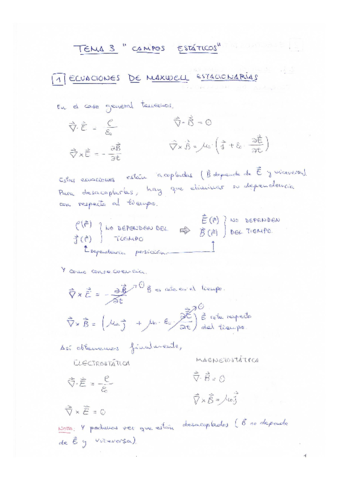 TEMA 3 "CAMPOS ESTÁTICOS"
1 ECUACIONES DE MAXWELL ESTACIONARIAS
En el caso general tenemos:
∇·E = ρ/ε₀    ∇·B = 0
∇×E = -∂B/∂t    ∇×B = μ₀(j + ε₀ ∂E/∂t)
Estas ecuaciones están acopladas (B depende de E y viceversa).
Para desacoplarlas, hay que eliminar su dependencia
con respecto al tiempo.
ρ(r) } NO DEPENDEN DEL ⇒ E(r) } NO DEPENDEN
j(r) } TIEMPO    B(r) } DEL TIEMPO
dependencia posición
Y como consecuencia:
∇×E = -∂B/∂t 0 B es       el tiempo.
∇×B = (μ₀j + μ₀ ε₀ ∂E/∂t) 0 E cte respecto
del tiempo.
Así obtenemos finalmente,
ELECTROSTÁTICA    MAGNETOSTÁTICA
∇·E = ρ/ε₀    ∇·B = 0
∇×E = 0    ∇×B = μ₀j
Y podemos ver que están desacopladas (B no depende
de E y viceversa)